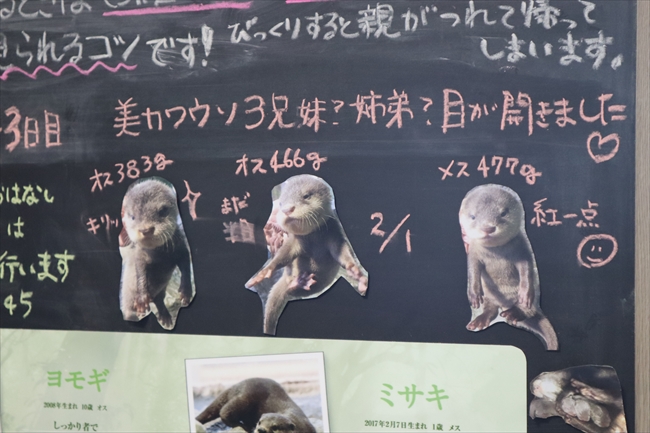 びっくりすると親がつれて帰って
見られるコツです! しまいます。
3日目 美カワウソ3兄妹?姉弟?目が開きました♡
オス383g オス466g メス477g
キリッ まだ 2/1 紅一点
おはなし
は
行います
45
ヨモギ ミサキ
2008年生まれ 10歳 オス 2017年2月7日生まれ 1歳 メス
しっかり者で